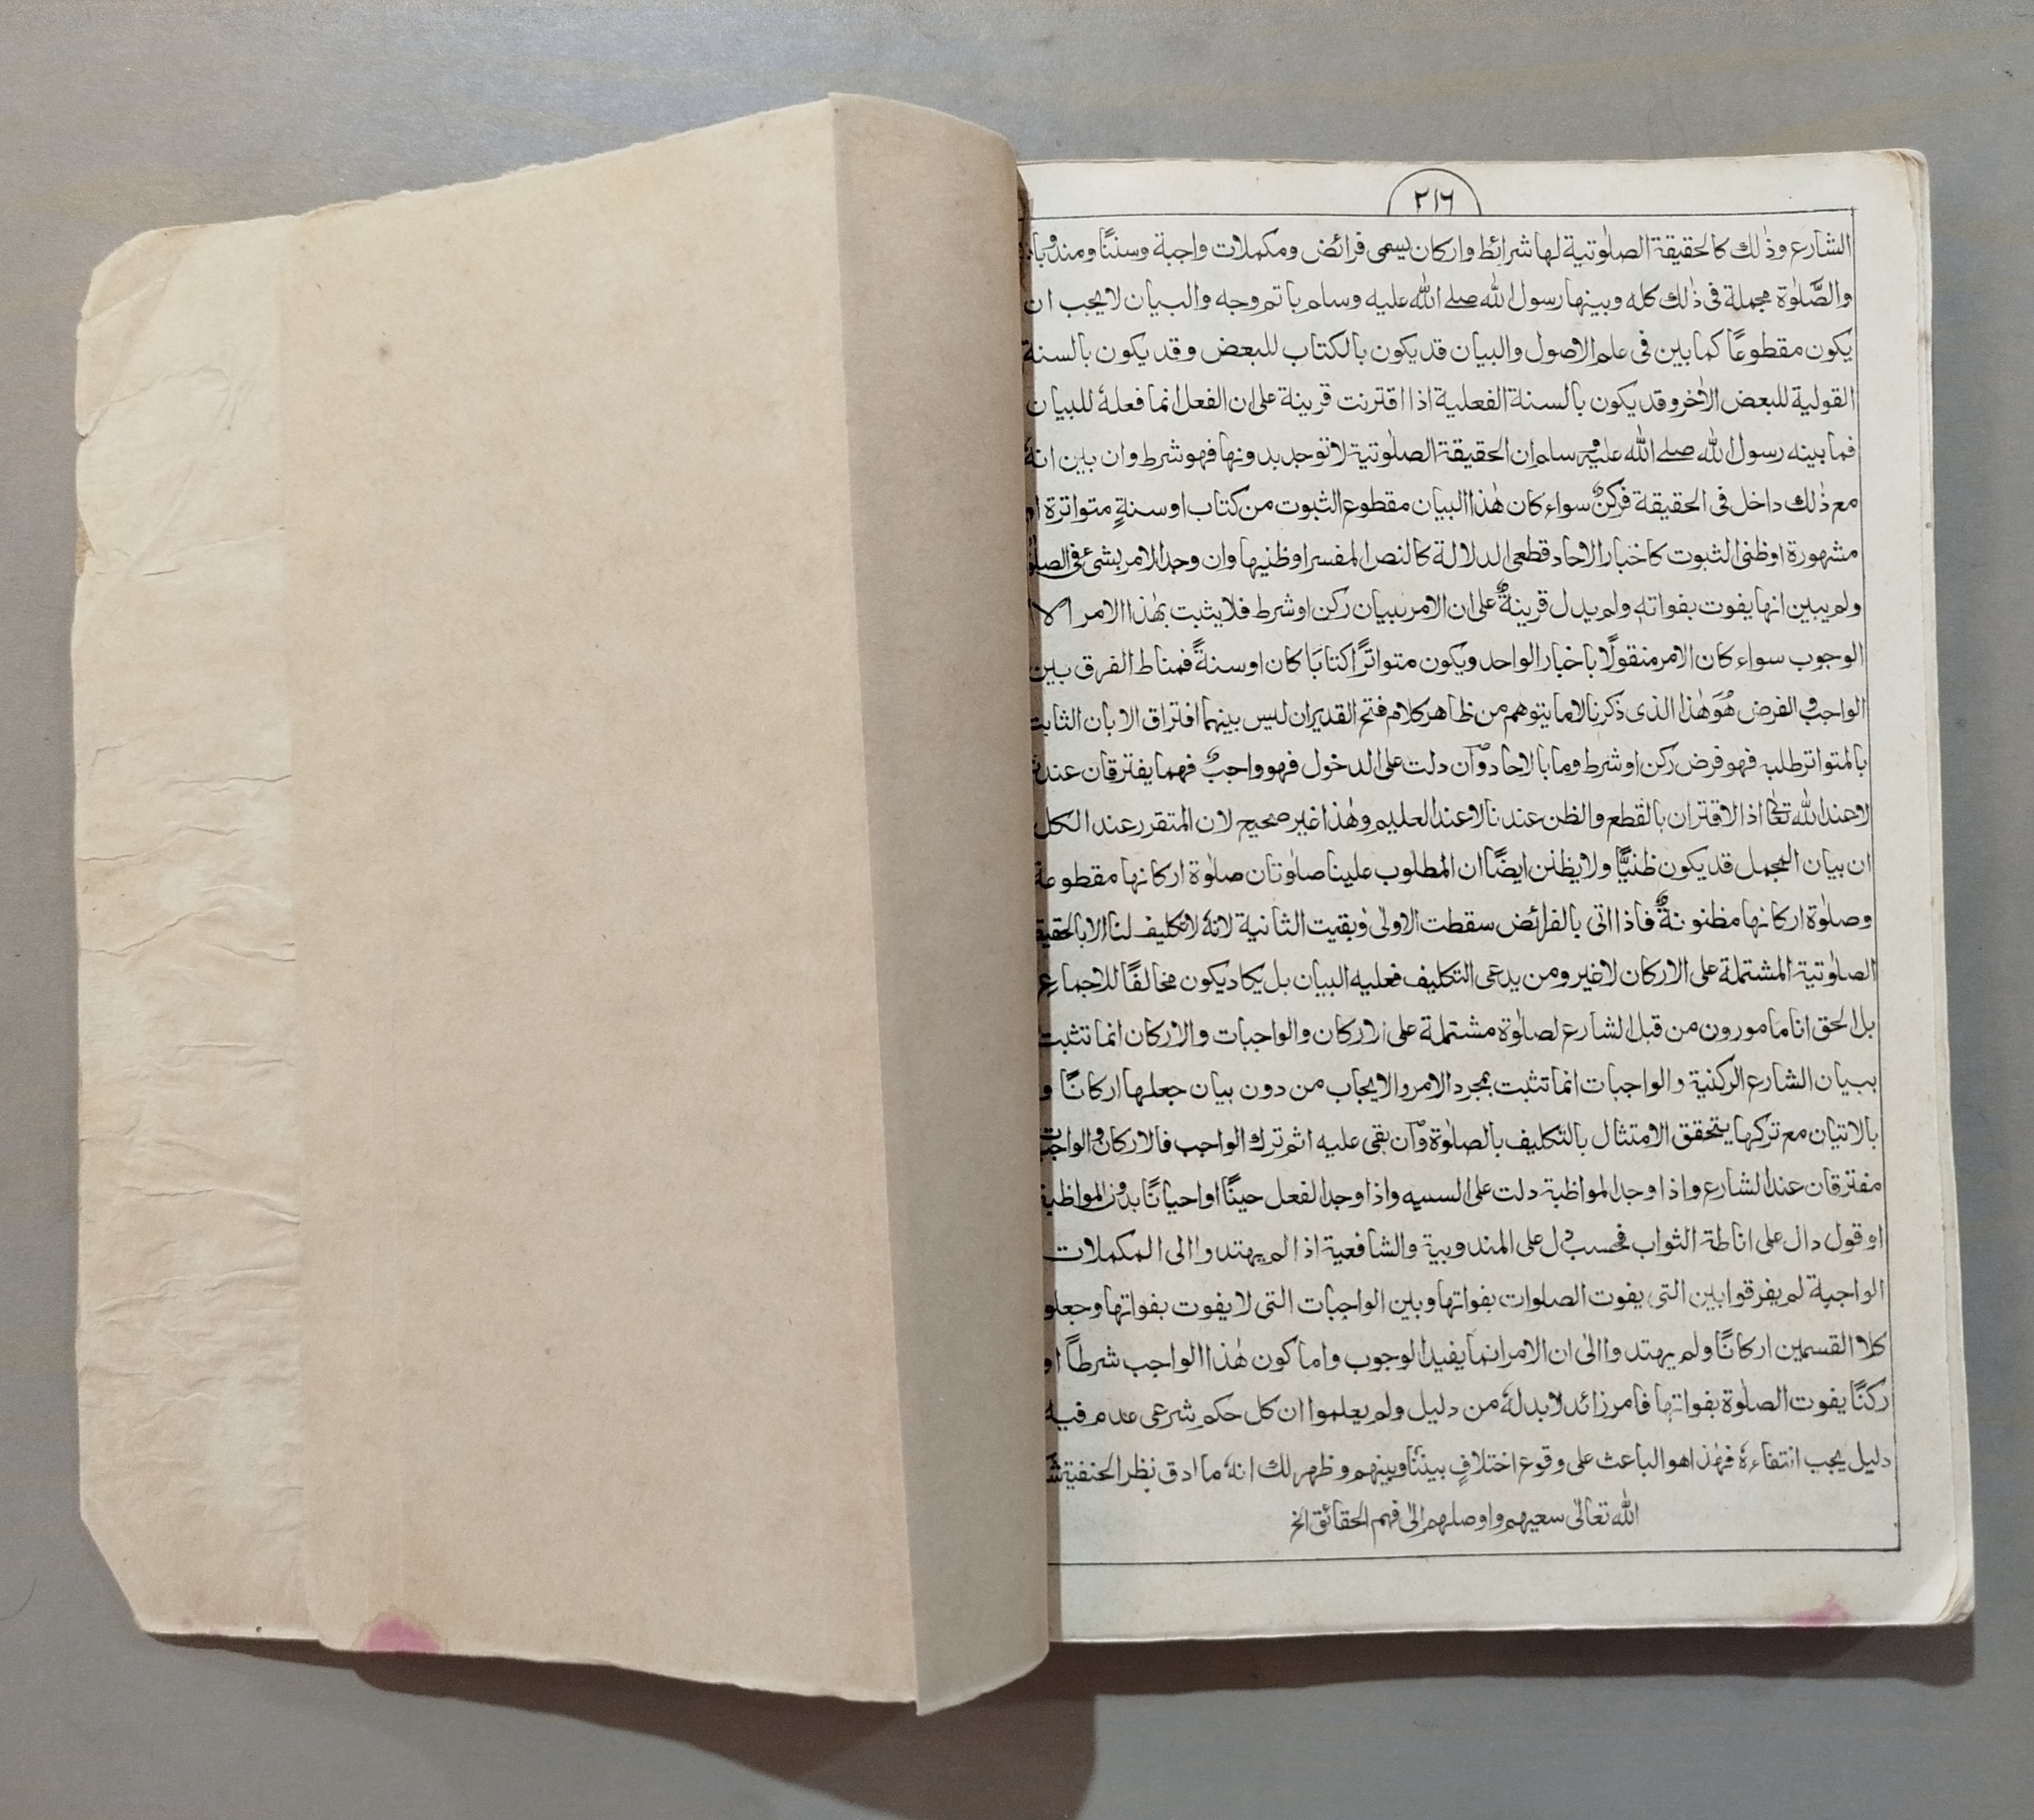 ٢١٦
الشارع وذٰلك كالحقيقة الصلوٰتية لها شرائط واركان يسمى فرائض ومكملات واجبة وسننًا ومندوبات
والصَّلوٰة مجملة فى ذٰلك كله وبينها رسول الله صلے الله عليه وسلم باتم وجه والبيان لا يجب ان
يكون مقطوعًا كما بين فى علم الاصول والبيان قد يكون بالكتاب للبعض وقد يكون بالسنة
القولية للبعض الاٰخر وقد يكون بالسنة الفعلية اذا اقترنت قرينة على ان الفعل انما فعلهٗ للبيان
فما بينه رسول الله صلے الله عليه وسلم ان الحقيقة الصلوٰتية لا توجد بدونها فهو شرط وان بين انهٗ
مع ذٰلك داخل فى الحقيقة فركنٌ سواء كان هٰذا البيان مقطوع الثبوت من كتاب او سنةٍ متواترة او
مشهورة او ظنى الثبوت كاخبار الاحاد قطعى الدلالة كالنص المفسر او ظنيها وان وجد الامر بشئ فى الصلوٰة
ولم يبين انها يفوت بفواته ولم يدل قرينةٌ على ان الامر لبيان ركن او شرط فلا يثبت بهٰذا الامر الا
الوجوب سواء كان الامر منقولًا باخبار الواحد ويكون متواترًا كتابًا كان او سنةً فمناط الفرق بين
الواجب و الفرض هُوَ هٰذا الذى ذكرنا لا ما يتوهم من ظاهر كلام فتح القدير ان ليس بينهما افتراق الا بان الثابت
بالمتواتر طلبه فهو فرض ركن او شرط وما بالاحاد وآن دلت على الدخول فهو واجبٌ فهما يفترقان عندنا
لا عند الله تعا اذ الاقتران بالقطع والظن عندنا لا عند العليم وهٰذا غير صحيح لان المتقرر عند الكل
ان بيان المجمل قد يكون ظنيًّا ولا يظنن ايضًا ان المطلوب علينا صلوٰتان صلوٰة اركانها مقطوعة
وصلوٰة اركانها مظنونةٌ فاذا اتى بالفرائض سقطت الاولىٰ وبقيت الثانية لانهٗ لا تكليف لنا الا بالحقيقة
الصلوٰتية المشتملة على الاركان لا غير ومن يدعى التكليف فعليه البيان بل يكاد يكون مخالفًا للاجماع
بل الحق انا مامورون من قبل الشارع لصلوٰة مشتملة على الاركان والواجبات والاركان انما تثبت
ببيان الشارع الركنية والواجبات انما تثبت بمجرد الامر والايجاب من دون بيان جعلها اركانًا و
بالاتيان مع تركها يتحقق الامتثال بالتكليف بالصلوٰة وآن بقى عليه اثم ترك الواجب فالاركان والواجبات
مفترقان عند الشارع واذا وجد المواظبة دلت على السسيه واذا وجد الفعل حينًا او احيانًا بدون المواظبة
او قول دال على اناطة الثواب فحسب دل على المندوبية والشافعية اذا لم يهتدوا الى المكملات
الواجبة لم يفرقوا بين التى يفوت الصلوات بفواتها وبين الواجبات التى لا يفوت بفواتها وجعلوا
كلا القسمين اركانًا ولم يهتدوا الىٰ ان الامر انما يفيد الوجوب واما كون هٰذا الواجب شرطًا او
ركنًا يفوت الصلوٰة بفواتها فامر زائد لا بد لهٗ من دليل ولم يعلموا ان كل حكم شرعى عدم فيه
دليل يجب انتفاءهٗ فهٰذا هو الباعث على وقوع اختلافٍ بيننا وبينهم وظهر لك انهٗ ما ادق نظر الحنفية شكر
الله تعالىٰ سعيهم واوصلهم الىٰ فهم الحقائق الخ